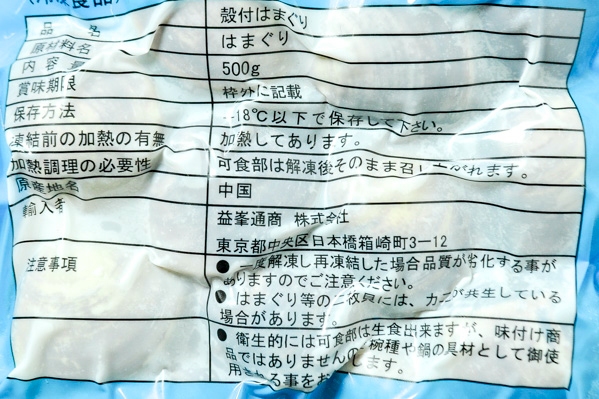 食品）
品名 殻付はまぐり
原材料名 はまぐり
内容量 500g
賞味期限 枠外に記載
保存方法 -18℃以下で保存して下さい。
凍結前の加熱の有無 加熱してあります。
加熱調理の必要性 可食部は解凍後そのまま召し上がれます。
原産地名 中国
輸入者 益峯通商 株式会社
東京都中央区日本橋箱崎町3-12
注意事項 ●一度解凍し再凍結した場合品質が劣化する事が
ありますのでご注意ください。
●はまぐり等の二枚貝には、カニが共生している
場合があります。
●衛生的には可食部は生食出来ますが、味付け商
品ではありませんの 椀種や鍋の具材として御使
用される事をお します。